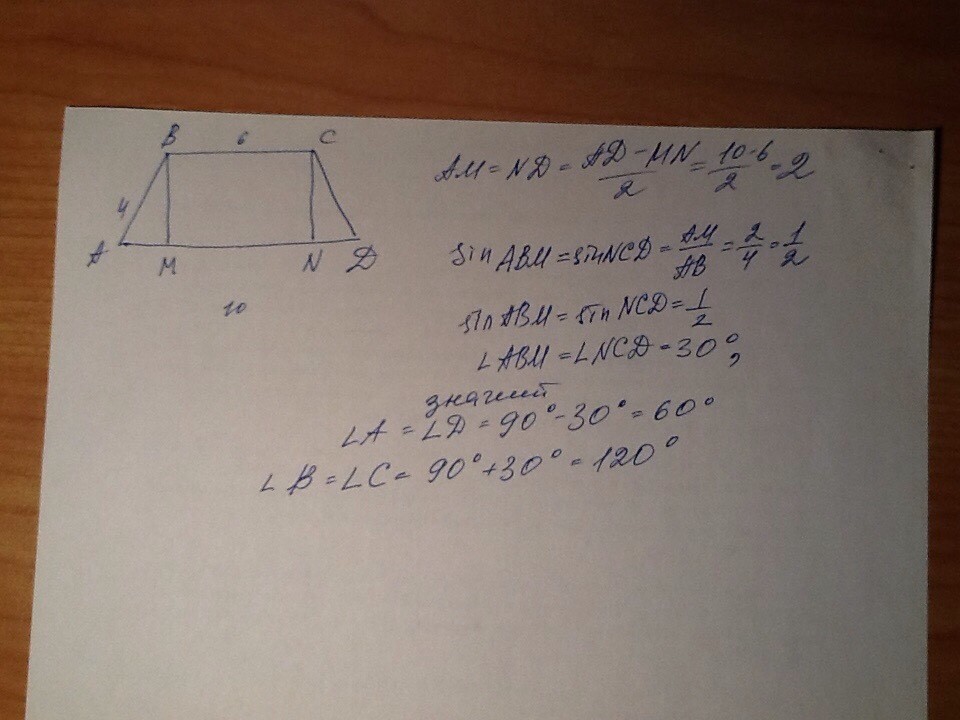 B 6 C
4
A M N D
10
AM = ND = AD - MN / 2 = 10-6 / 2 = 2
sin ABM = sin NCD = AM / AB = 2 / 4 = 1 / 2
sin ABM = sin NCD = 1 / 2
∠ABM = ∠NCD = 30°,
значит
∠A = ∠D = 90° - 30° = 60°
∠B = ∠C = 90° + 30° = 120°